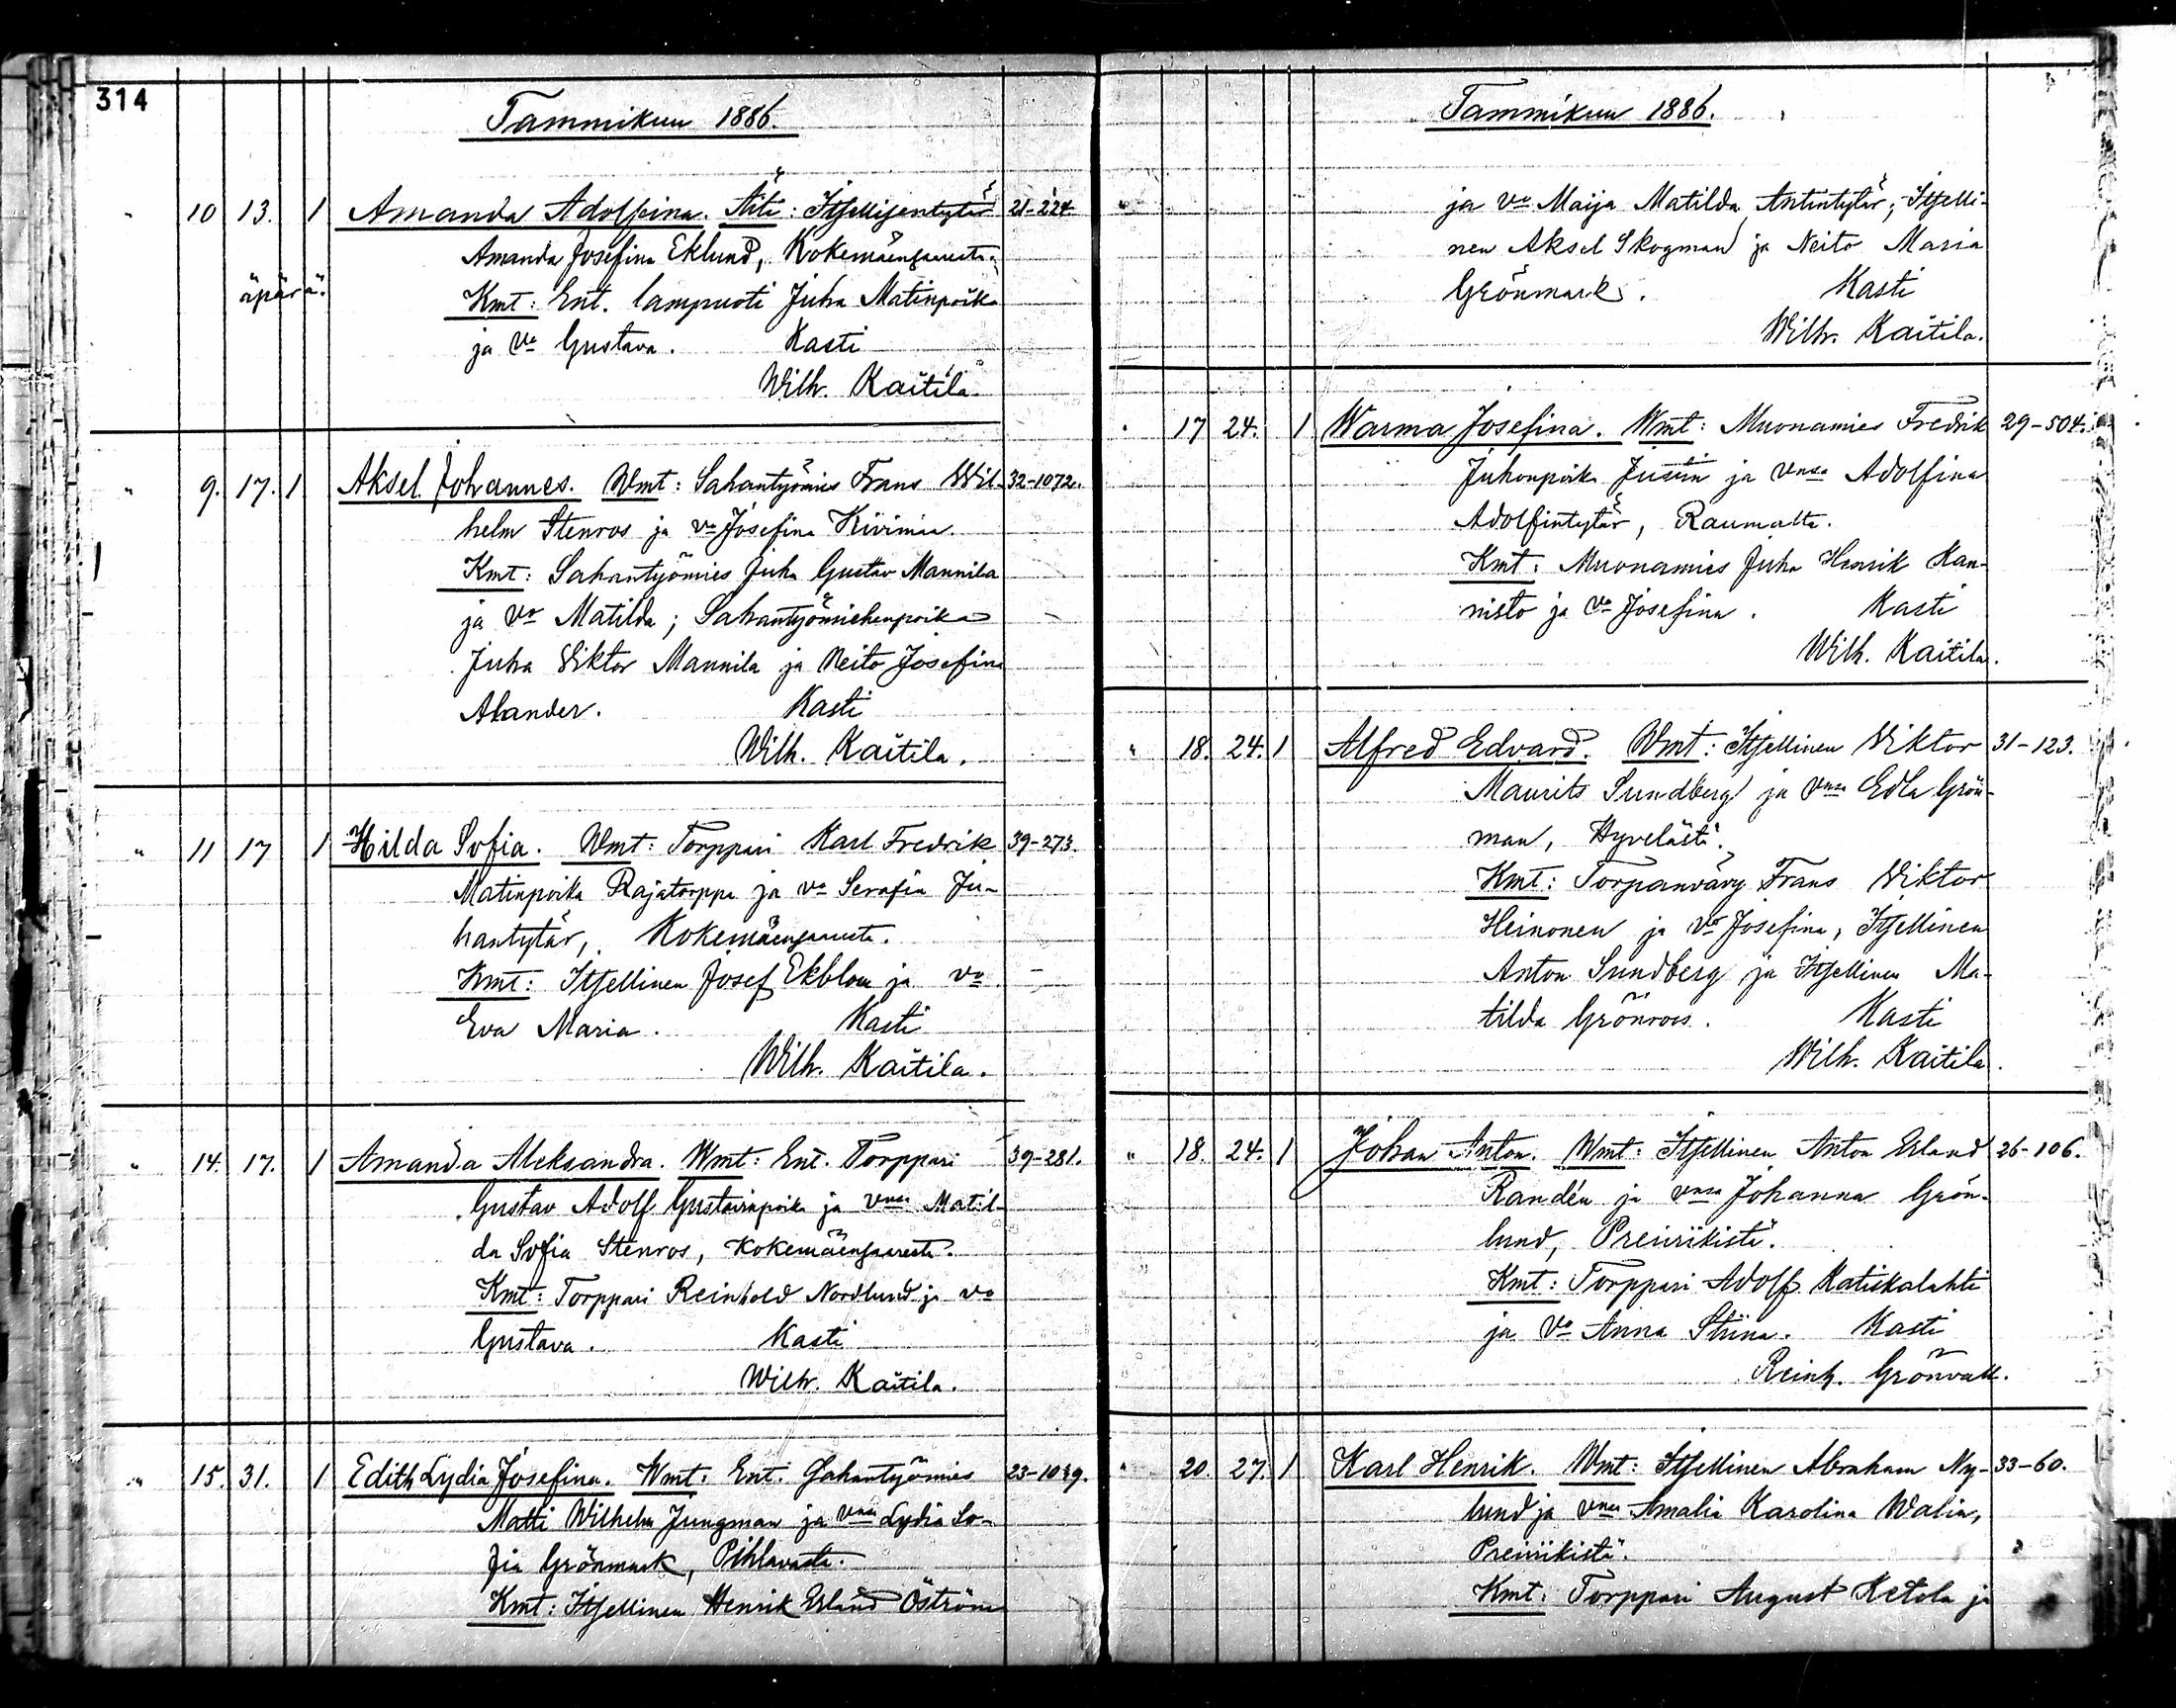 314
Tammikuu 1886.
" 10 13. 1 Amanda Adolfina. Äiti: Itsellisentytär 21-224.
Amanda Josefina Eklund, Kokemäensaaresta.
äpärä. Kmt: Ent. lampuoti Juha Matinpoika
ja Vo Gustava. Kasti
Wilh. Kaitila.
" 9. 17. 1 Aksel Johannes. Wmt: Sahantyömies Frans Wil- 32-1072.
helm Stenros ja vo Josefina Kivimaa.
Kmt: Sahantyömies Juha Gustav Mannila
ja Vo Matilda; Sahantyömiehenpoika
Juha Viktor Mannila ja Neito Josefina
Alander. Kasti
Wilh. Kaitila.
" 11 17 1 Hilda Sofia. Wmt: Torppari Karl Fredrik 39-273.
Matinpoika Rajatorppa ja vo Serafia Ju-
hantytär, Kokemäensaaresta.
Kmt: Itsellinen Josef Ekblom ja vo
Eva Maria. Kasti
Wilh. Kaitila.
" 14. 17. 1 Amanda Aleksandra. Wmt: Ent. Torppari 39-281.
Gustav Adolf Gustavinpoika ja vnsa Matil-
da Sofia Stenros, Kokemäensaaresta.
Kmt: Torppari Reinhold Nordlund ja vo
Gustava. Kasti
Wilh. Kaitila.
" 15. 31. 1 Edith Lydia Josefina. Wmt: Ent. Sahantyömies 23-1039.
Matti Wilhelm Jungman ja vnsa Lydia So-
fia Grönmark, Pihlavasta.
Kmt: Itsellinen Henrik Erland Öström
Tammikuu 1886.
" ja vo Maija Matilda Antintytär; Itselli-
nen Aksel Skogman ja Neito Maria
Grönmark. Kasti
Wilh. Kaitila.
" 17 24. 1 Warma Josefina. Wmt: Muonamies Fredrik 29-504.
Juhonpoika Jusim ja vnsa Adolfina
Adolfintytär, Raumalta.
Kmt: Muonamies Juha Henrik Kan-
nisto ja vo Josefina. Kasti
Wilh. Kaitila.
" 18. 24. 1 Alfred Edvard. Wmt: Itsellinen Viktor 31-123.
Maurits Sundberg ja vnsa Edla Grön-
man, Hyvelästä.
Kmt: Torpanvävy Frans Viktor
Heinonen ja Vo Josefina, Itsellinen
Anton Sundberg ja Itsellinen Ma-
tilda Grönroos. Kasti
Wilh. Kaitila.
" 18. 24. 1 Johan Anton. Wmt: Itsellinen Anton Erland 26-106.
Randén ja vnsa Johanna Grön-
lund, Preiviikistä.
Kmt: Torppari Adolf Katiskalahti
ja Vo Anna Stiina. Kasti
Reinh. Grönvall.
" 20. 27. 1 Karl Henrik. Wmt: Itsellinen Abraham Ny- 33-60.
lund ja vnsa Amalia Karolina Walin,
Preiviikistä.
Kmt: Torppari August Ketola ja